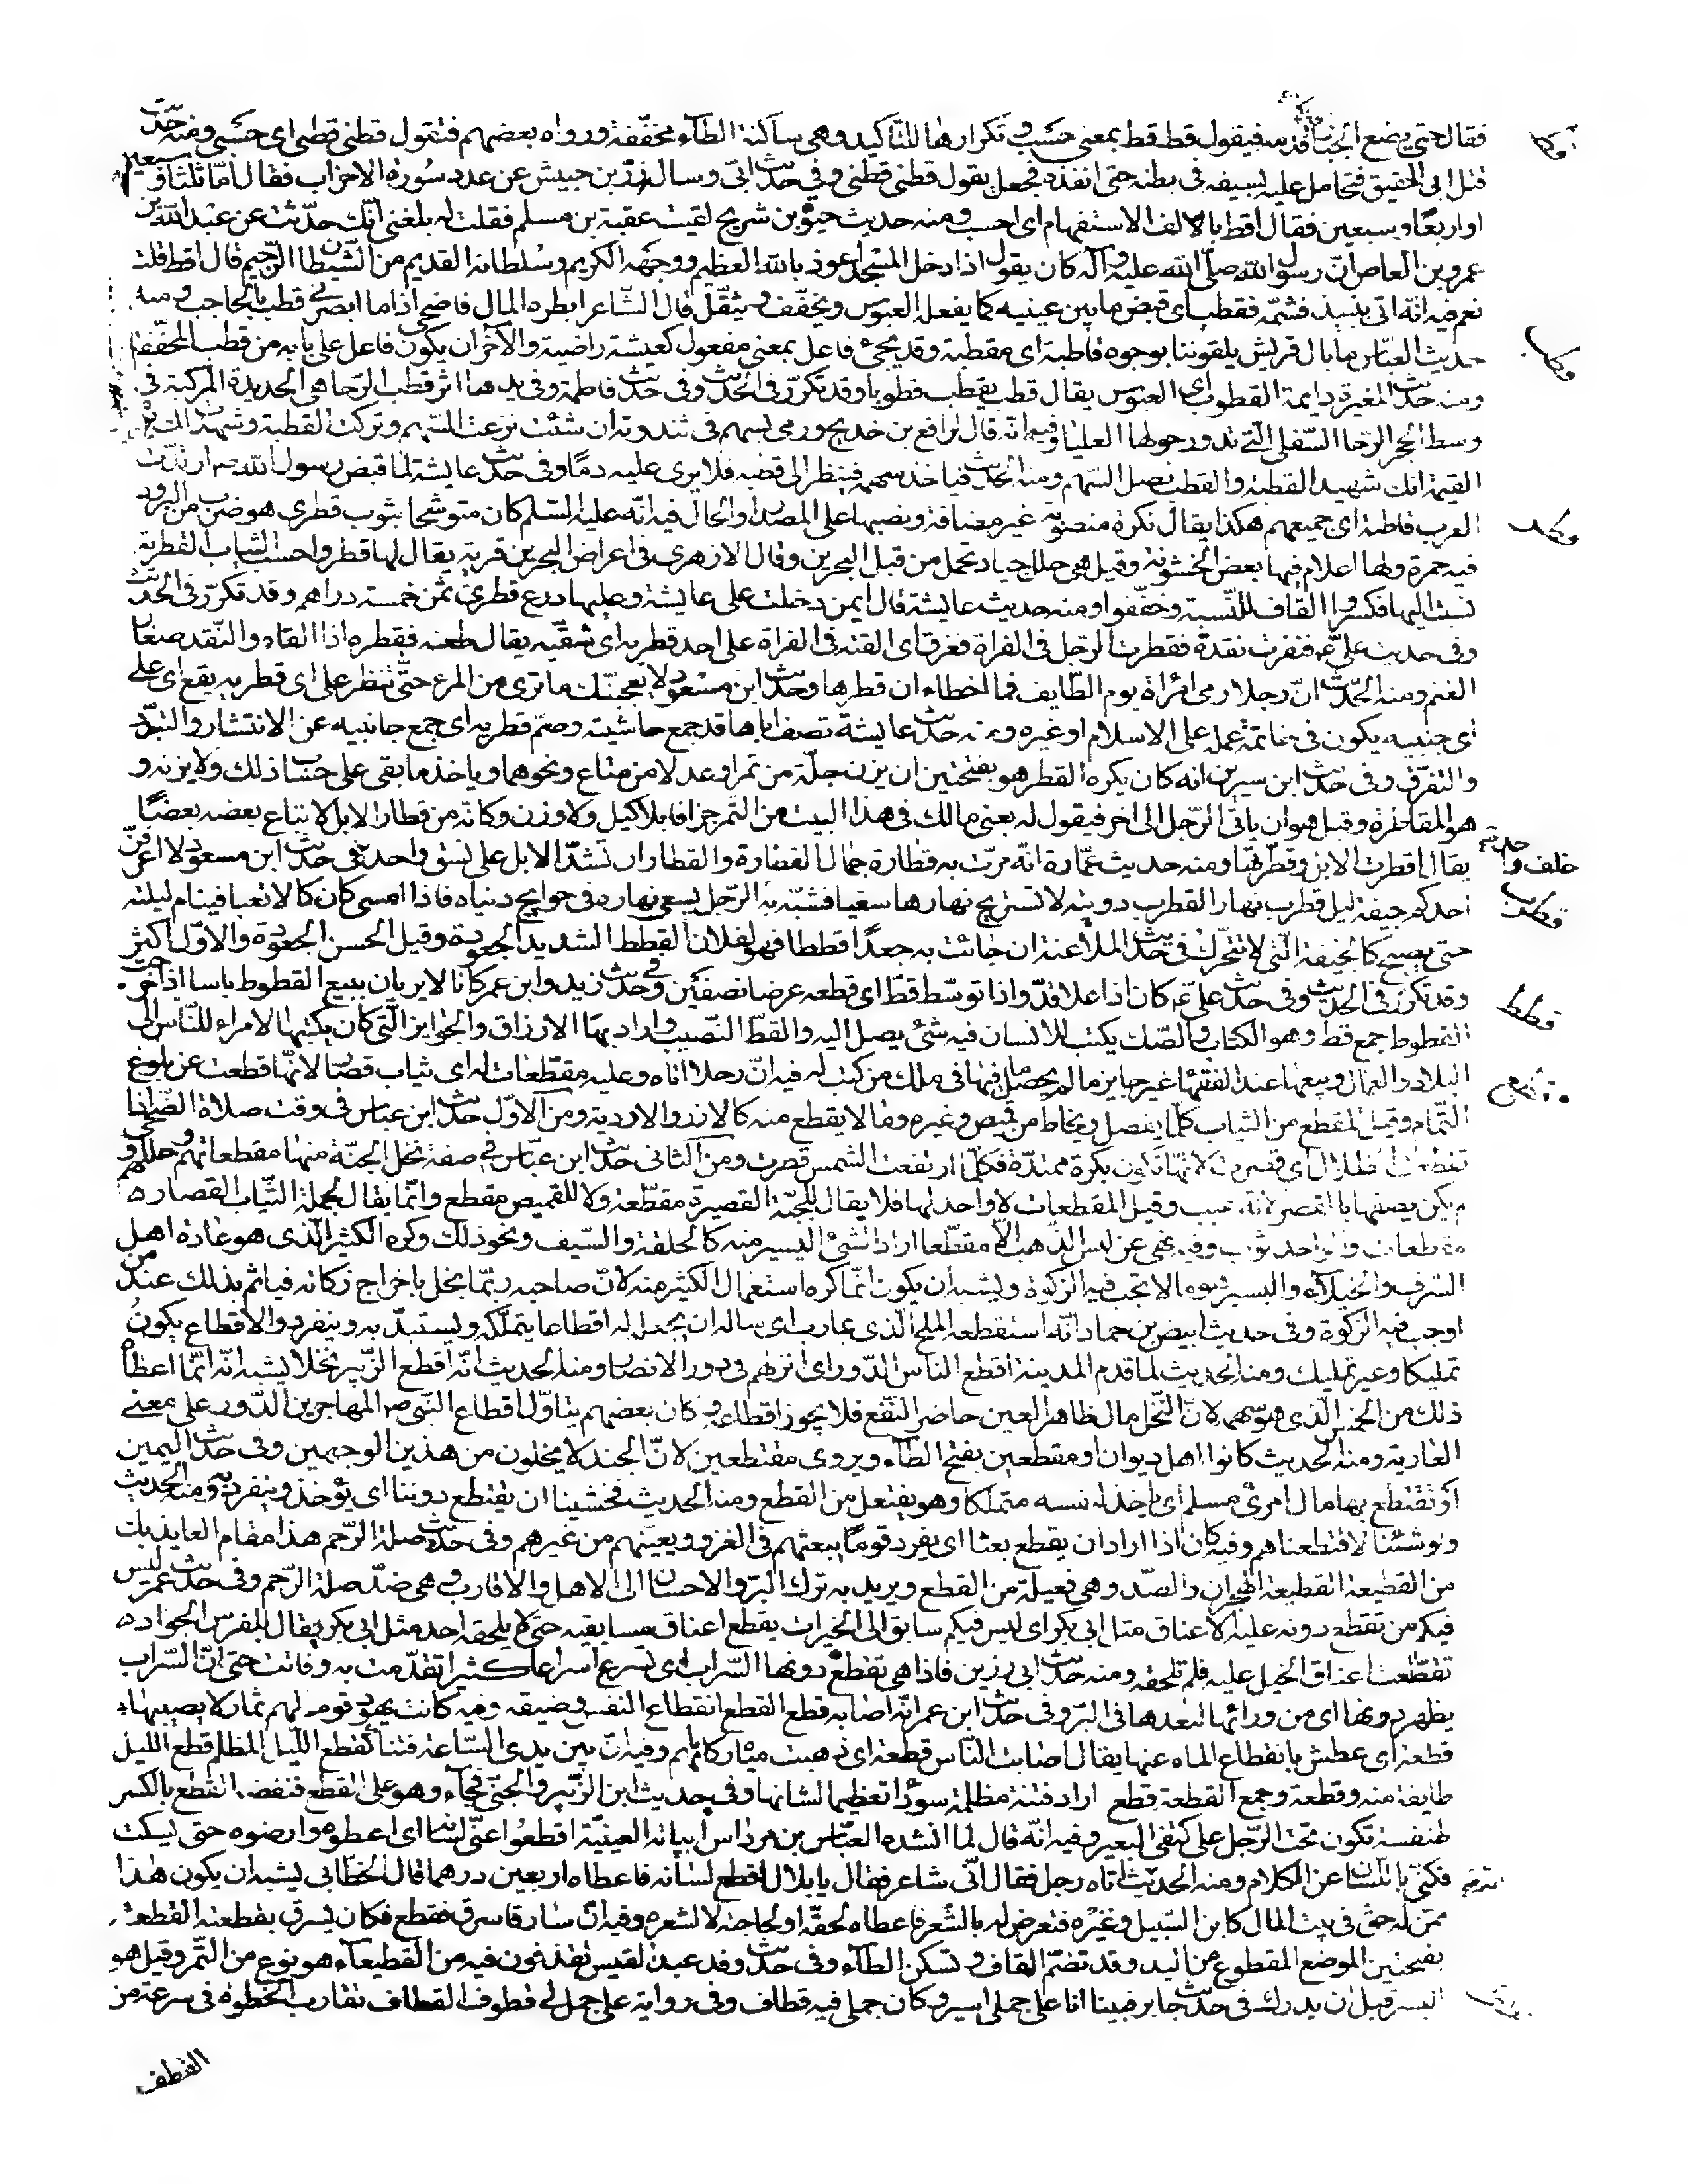 فقال حتى يضع الجبار قدمه فيقول قط قط بمعنى حسب و تكرارها للتأكيد وهى ساكنة الطآء مخففة ورواه بعضهم فتقول قطنى قطنى اى حسبى ومنه حديث
قط
قتل ابى الحقيق فتحامل عليه بسيفه فى بطنه حتى انفذه فجعل يقول قطنى قطنى وفى حديث ابىّ وسال زرّ بن حبيش عن عدد سورة الاحزاب فقال امّا ثلثا و سبعين
او اربعًا و سبعين فقال اقط بالالف الاستفهام اى احسب ومنه حديث حيوة بن شريح لقيت عقبة بن مسلم فقلت له بلغنى انّك حدّثت عن عبد الله بن
عمرو بن العاص انّ رسول الله صلّى الله عليه وآله كان يقول اذا دخل المسجد اعوذ بالله العظيم ووجهه الكريم وسلطانه القديم من الشيطان الرّجيم قال اقط قلت
نعم فيه انّه اتى بنبيذ فشمّه فقطب اى قبض ما بين عينيه كما يفعله العبوس ويخفّف و يثقّل قال الشاعر ابطره المال فاضحى اذا ما ابصرنى قطب بالحاجب ومنه
قطب
حديث العبّاس ما بال قريش يلقوننا بوجوه قاطبة اى مقطبة وقد يجئ فاعل بمعنى مفعول كعيشة راضية والآخر ان يكون فاعل على بابه من قطب المخفّفة
ومنه حديث المغيرة دايمة القطوب اى العبوس يقال قطب يقطب قطوبا وقد تكرّر فى الحديث وفى حديث فاطمة وفى يدها اثر قطب الرّحا هى الحديدة المركبة فى
وسط الحجر الرّحا السّفلى الّتى تدور حولها العليا وفيه انّه قال لرافع بن خديج ورمى بسهم فى ثندوته ان شئت نزعت السّهم وتركت القطبة وشهدت لك يوم
القيمة انك شهيد القطبة والقطب نصل السّهم ومنه الحديث فياخذ سهمه فينظر الى قطبه فلا يرى عليه دمًا وفى حديث عايشة لمّا قبض رسول الله ص ارتدّت
العرب قاطبة اى جميعهم هكذا يقال نكرة منصوبة غير مضافة ونصبها على المصدر او الحال فيه انّه عليه السّلم كان متوشحا بثوب قطرى هو ضرب من البرود
قطر
فيه حمرة ولها اعلام فيها بعض الخشونة وقيل هى حلل جياد تحمل من قبل البحرين وقال الازهرى فى اعراض البحرين قرية يقال لها قطر واحسب الثياب القطرية
نسبت اليها فكسروا القاف للنّسبة وخفّفوا ومنه حديث عايشة قال ايمن دخلت على عايشة وعليها درع قطرىّ ثمن خمسة دراهم وقد تكرّر فى الحديث
وفى حديث علىّ ع فنفرت نقدة فقطرت الرّجل فى الفراة فغرق اى القته فى الفراة على احد قطريه اى شقّيه يقال طعنه فقطره اذا القاه والنّقد صغار
الغنم ومنه الحديث انّ رجلا رمى امرأة يوم الطّايف فما اخطاء ان قطرها وحديث ابن مسعود لا يعجبنّك ما ترى من المرء حتّى تنظر على اى قطريه يقع اى على
اى جنبيه يكون فى خاتمة عمله على الاسلام او غيره ومنه حديث عايشة تصف اباها قد جمع حاشيته وضمّ قطريه اى جمع جانبيه عن الانتشار والتبدّد
والتفرّق وفى حديث ابن سيرين انه كان يكره القطر هو بفتحتين ان يزن جلّة من تمر او عدلا من متاع ونحوهما وياخذ ما بقى على حساب ذلك ولا يزنه و
هو المقاطرة وقيل هو ان ياتى الرّجل الى اخر فيقول له بعنى مالك فى هذا البيت من التمر جزافا بلا كيل ولا وزن وكانه من قطار الابل لاتباع بعضه بعضًا
يقال اقطرت الابل وقطّرتها ومنه حديث عمّارة انّه مرّت به قطارة جمال القطارة والقطار ان تشدّ الابل على نسق واحد خلف واحد فى حديث ابن مسعود لا اعرفنّ
احدكم جيفة ليل قطرب نهار القطرب دويبّة لا تستريح نهارها سعيا فشبّه به الرّجل يسعى نهاره فى حوايج دنياه فاذا امسى كان كالا تعبا فينام ليلته
قطرب
حتى يصبح كالجيفة الّتى لا تتحرّك فى حديث الملاعنة ان جائت به جعدًا قططا فهو لفلان القطط الشديد الجعودة وقيل الحسن الجعودة والاوّل اكثر
وقد تكرّر فى الحديث وفى حديث علىّ ع كان اذا علا قدّ واذا توسّط قطّ اى قطعه عرضا نصفين وفى حديث زيد وابن عمر كانا لا يريان ببيع القطوط باسا اذا خرجت
قطط
القطوط جمع قط وهو الكتاب والصّك يكتب للانسان فيه شئ يصل اليه والقطّ النّصيب واراد بها الارزاق والجوايز الّتى كان يكتبها الامراء للنّاس الى
البلاد والعمال وبيعها عند الفقهاء غير جايز ما لم يحصل ما فيها فى ملك من كتب له فيه انّ رجلا اتاه وعليه مقطّعات له اى ثياب قصار لانّها قطعت عن بلوغ
قطع
التّمام وقيل المقطع من الثياب كلّ ما يفصل ويخاط من قميص وغيره وما لا يقطع منه كالازر والاردية ومن الاوّل حديث ابن عباس فى وقت صلاة الضّحى اذا
تقطّعت الظلال اى قصرت لانّها تكون بكرة ممتدّة فكلّما ارتفعت الشمس قصرت ومن الثانى حديث ابن عبّاس فى صفة نخل الجنّة منها مقطعاتهم وحللهم و
لم يكن يصفها بالقصر لانّه عيب وقيل المقطعات لا واحد لها فلا يقال للجبّة القصيرة مقطّعة ولا للقميص مقطع وانّما يقال لجملة الثّياب القصار
مقطعات والواحد ثوب وفيه نهى عن لبس الذّهب الّا مقطّعا اراد الشئ اليسير منه كالحلقة والسّيف ونحو ذلك وكره الكثير الّذى هو عادة اهل
السّرف والخيلاء واليسير هو ما لا تجب فيه الزكوة ويشبه ان يكون انّما كره استعمال الكثير منه لانّ صاحبه ربّما بخل باخراج زكاته فياثم بذلك عند من
اوجب فيه الزكوة وفى حديث ابيض بن حماد انّه استقطعه الملح الّذى بمارب اى ساله ان يجعل له اقطاعا يتملّكه ويستبدّ به وينفرد والاقطاع يكون
تمليكا وغير تمليك ومنه الحديث لما قدم المدينة اقطع الناس الدّور اى انزلهم فى دور الانصار ومنه الحديث انّه اقطع الزّبير نخلا يشبه انّه انّما اعطاه
ذلك من الخمس الّذى هو سهمه لانّ النّخل مال ظاهر العين حاضر النّفع فلا يجوز اقطاعه و كان بعضهم يتاوّل اقطاع النّبى ص المهاجرين الدّور على معنى
العارية ومنه الحديث كانوا اهل ديوان او مقطعين بفتح الطآء ويروى مقتطعين لانّ الجند لا يخلون من هذين الوجهين وفى حديث اليمين
او تقتطع بها مال امرئ مسلم اى ياخذه لنفسه متملّكا وهو يفتعل من القطع ومنه الحديث فخشينا ان يقتطع دوننا اى يؤخذ وينفرد به ومنه الحديث
ولو شئنا لاقتطعناهم وفيه كان اذا اراد ان يقطع بعثا اى يفرد قومًا يبعثهم فى الغزو ويعيّنهم من غيرهم وفى حديث صلة الرّحم هذا مقام العايذ بك
من القطيعة القطيعة الهجران والصّد وهى فعيلة من القطع ويريد به ترك البرّ والاحسان الى الاهل والاقارب وهى ضدّ صلة الرّحم وفى حديث عمر ليس
فيكم من تقطع دونه عليه الاعناق مثل ابى بكر اى ليس فيكم سابق الى الخيرات يقطع اعناق مسابقيه حتى لا يلحقه احد مثل ابى بكر يقال للفرس الجواد
تقطّعت اعناق الخيل عليه فلم تلحقه ومنه حديث ابى رزين فاذا هى تقطع دونها السّراب اى تسرع اسراعا كثيرا تقدّمت به وفاتت حتى انّ السّراب
يظهر دونها اى من ورائها لبعدها فى البرّ وفى حديث ابن عمر انّه اصابه قطع القطع انقطاع النفس وضيقه وفيه كانت يهود قوم لهم ثمار لا يصيبها
قطعة اى عطش بانقطاع الماء عنها يقال اصابت النّاس قطعة اى ذهبت مياه ركاياهم وفيه انّ بين يدى السّاعة فتنا كقطع اللّيل المظلم قطع الليل
طايفة منه وقطعة وجمع القطعة قطع اراد فتنة مظلمة سوداء تعظيما لشانها وفى حديث ابن الزّبير والجنّى فجاء وهو على القطع فنفضه القطع بالكسر
طنفسة تكون تحت الرّحل على كتفى البعير وفيه انّه قال لما انشده العبّاس بن مرداس ابياته العينيّة اقطعوا عنّى لسانه اى اعطوه وارضوه حتى يسكت
فكنّى باللّسان عن الكلام ومنه الحديث اتاه رجل فقال انّى شاعر فقال يا بلال اقطع لسانه فاعطاه اربعين درهما قال الخطّابى يشبه ان يكون هذا
ممّن له حقّ فى بيت المال كابن السّبيل وغيره فتعرض له بالشّعر فاعطاه لحقّه او لحاجته لا لشعره وفيه انّ سارقا سرق فقطع فكان يسرق بقطعته القطعة
بفتحتين الموضع المقطوع من اليد وقد تضمّ القاف و تسكن الطآء وفى حديث وفد عبد القيس تقذفون فيه من القطيعآء هو نوع من التّمر وقيل هو
البسر قبل ان يدرك فى حديث جابر فبينا انا على جملى اسير وكان جملى فيه قطاف وفى رواية على جمل لى قطوف القطاف تقارب الخطوة فى سرعة من
القطف